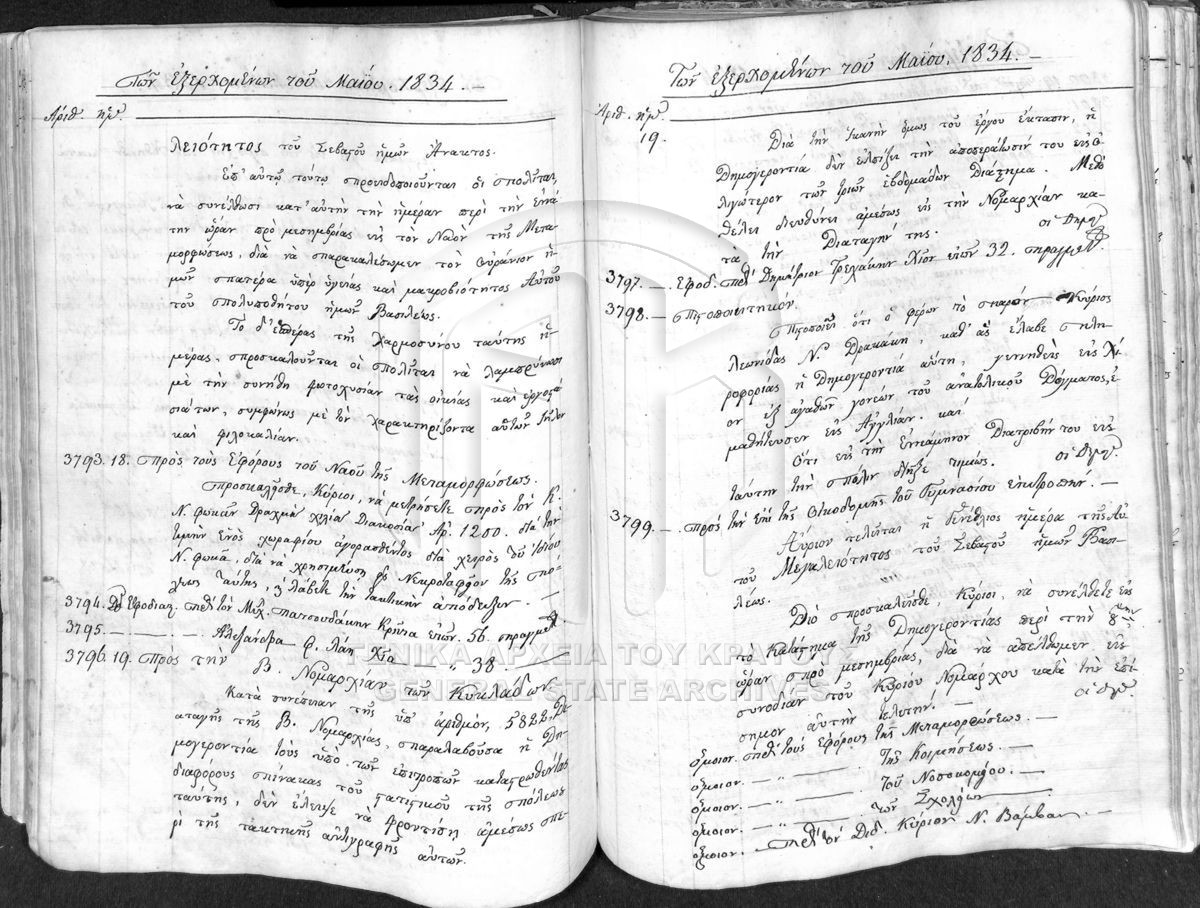 Τῶν ἐξερχομένων τοῦ Μαΐου. 1834.
Ἀριθ. ἡμ.
λειότητος τοῦ Σεβαστοῦ ἡμῶν Ἄνακτος.
Ἐπ' αὐτῷ τούτῳ προειδοποιοῦνται οἱ πολῖται,
νὰ συνέλθωσι κατ' αὐτὴν τὴν ἡμέραν περὶ τὴν ἐννά
την ὥραν πρὸ μεσημβρίας εἰς τὸν Ναὸν τῆς Μετα
μορφώσεως, διὰ νὰ παρακαλέσωμεν τὸν Οὐράνιον ἡ
μῶν πατέρα ὑπὲρ ὑγιείας καὶ μακροβιότητος Αὐτοῦ
τοῦ πολυποθήτου ἡμῶν Βασιλέως.
Τὸ δ' ἑσπέρας τῆς χαρμοσύνου ταύτης ἡ
μέρας, προσκαλοῦνται οἱ πολῖται νὰ λαμπρύνωσι
μὲ τὴν συνήθη φωτοχυσίαν τὰς οἰκίας καὶ ἐργοστά
σιά των, συμφώνως μὲ τὸν χαρακτηρίζοντα αὐτοὺς ζῆλον
καὶ φιλοκαλίαν.
3793. 18. Πρὸς τοὺς Ἐφόρους τοῦ Ναοῦ τῆς Μεταμορφώσεως.
Προσκαλεῖσθε, Κύριοι, νὰ μετρήσετε πρὸς τὸν Κ.
Ν. Φωκᾶν Δραχμὰς χιλίας Διακοσίας Ἀρ. 1200. διὰ τὴν
τιμὴν ἑνὸς χωραφίου ἀγορασθέντος διὰ χειρὸς τοῦ ἰδίου
Ν. Φωκᾶ, διὰ νὰ χρησιμεύσῃ ὡς Νεκροταφεῖον τῆς πό
λεως αὐτῆς, λάβετε τὴν τακτικὴν ἀπόδειξιν.
3794. Ἐφοδιας. τὸν Μιχ. Πατσουδάκην Κρῆτα ἐτῶν. 56.
3795. Ἀλεξάνδρα Χία 38
3796. 19. Πρὸς τὴν Β. Νομαρχίαν τῶν Κυκλάδων.
Κατὰ συνέπειαν τῆς ὑπ' ἀριθμὸν, 5822, Δι
αταγῆς τῆς Β. Νομαρχίας, παραλαβοῦσα ἡ Δη
μογεροντία τοὺς ὑπὸ τῶν ἐπιτροπῶν καταστρωθέντας
διαφόρους πίνακας τοῦ στατιστικοῦ τῆς πόλεως
ταύτης, δὲν ἔλειψε νὰ φροντίσῃ ἀμέσως πε
ρὶ τῆς τακτικῆς ἀντιγραφῆς αὐτῶν.
Τῶν ἐξερχομένων τοῦ Μαΐου. 1834.
Ἀριθ. ἡμ.
19. Διὰ τὴν ἱκανὴν ὅμως τοῦ ἔργου ἔκτασιν, ἡ
Δημογεροντία δὲν ἐλπίζει τὴν ἀποπεράτωσίν του εἰς ὀ
λιγώτερον τῶν τριῶν ἑβδομάδων Διάστημα.
θέλει διευθύνει ἀμέσως εἰς τὴν Νομαρχίαν κα
τὰ τὴν Διαταγήν της. οἱ Δημογ.
3797. Ἐφοδ. Δημήτριον Χῖον ἐτῶν 32.
3798. Πιστοποιητικόν.
Πιστοποιεῖ ὅτι ὁ φέρων τὸ παρὸν Κύριος
Λεωνίδας Ν. Δρακάκη, καθ' ἃς ἔλαβε πλη
ροφορίας ἡ Δημογεροντία αὕτη, γεννηθεὶς εἰς Χί
ον ἐξ ἀγαθῶν γονέων τοῦ ἀνατολικοῦ Δόγματος, ἐ
μαθήτευσεν εἰς Ἀγγλίαν. καὶ
Ὅτι εἰς τὴν ἐννεάμηνον Διατριβήν του εἰς
ταύτην τὴν πόλιν διῆξε τιμίως. οἱ Δημογ.
3799. Πρὸς τὴν ἐπὶ τῆς Οἰκοδομῆς τοῦ Γυμνασίου ἐπιτροπήν.
Αὔριον τελεῖται ἡ γενέθλιος ἡμέρα τῆς Αὐ
τοῦ Μεγαλειότητος τοῦ Σεβαστοῦ ἡμῶν Βασι
λέως.
Διὸ προσκαλεῖσθε, Κύριοι, νὰ συνέλθετε εἰς
τὸ κατάστημα τῆς Δημογεροντίας περὶ τὴν 8
ὥραν πρὸ μεσημβρίας, διὰ νὰ ἀπέλθωμεν εἰς
συνοδίαν τοῦ Κυρίου Νομάρχου κατὰ τὴν ἐπί
σημον αὐτὴν τελετήν. οἱ Δημογ.
ὅμοιον. τοὺς ἐφόρους τῆς Μεταμορφώσεως.
ὅμοιον. τῆς Κοιμήσεως.
ὅμοιον. τοῦ Νοσοκομείου.
ὅμοιον. τῶν Σχολείων
ὅμοιον. Διδ. Κύριον Ν. Βάμβαν
ΓΕΝΙΚΑ ΑΡΧΕΙΑ ΤΟΥ ΚΡΑΤΟΥΣ
GENERAL STATE ARCHIVES